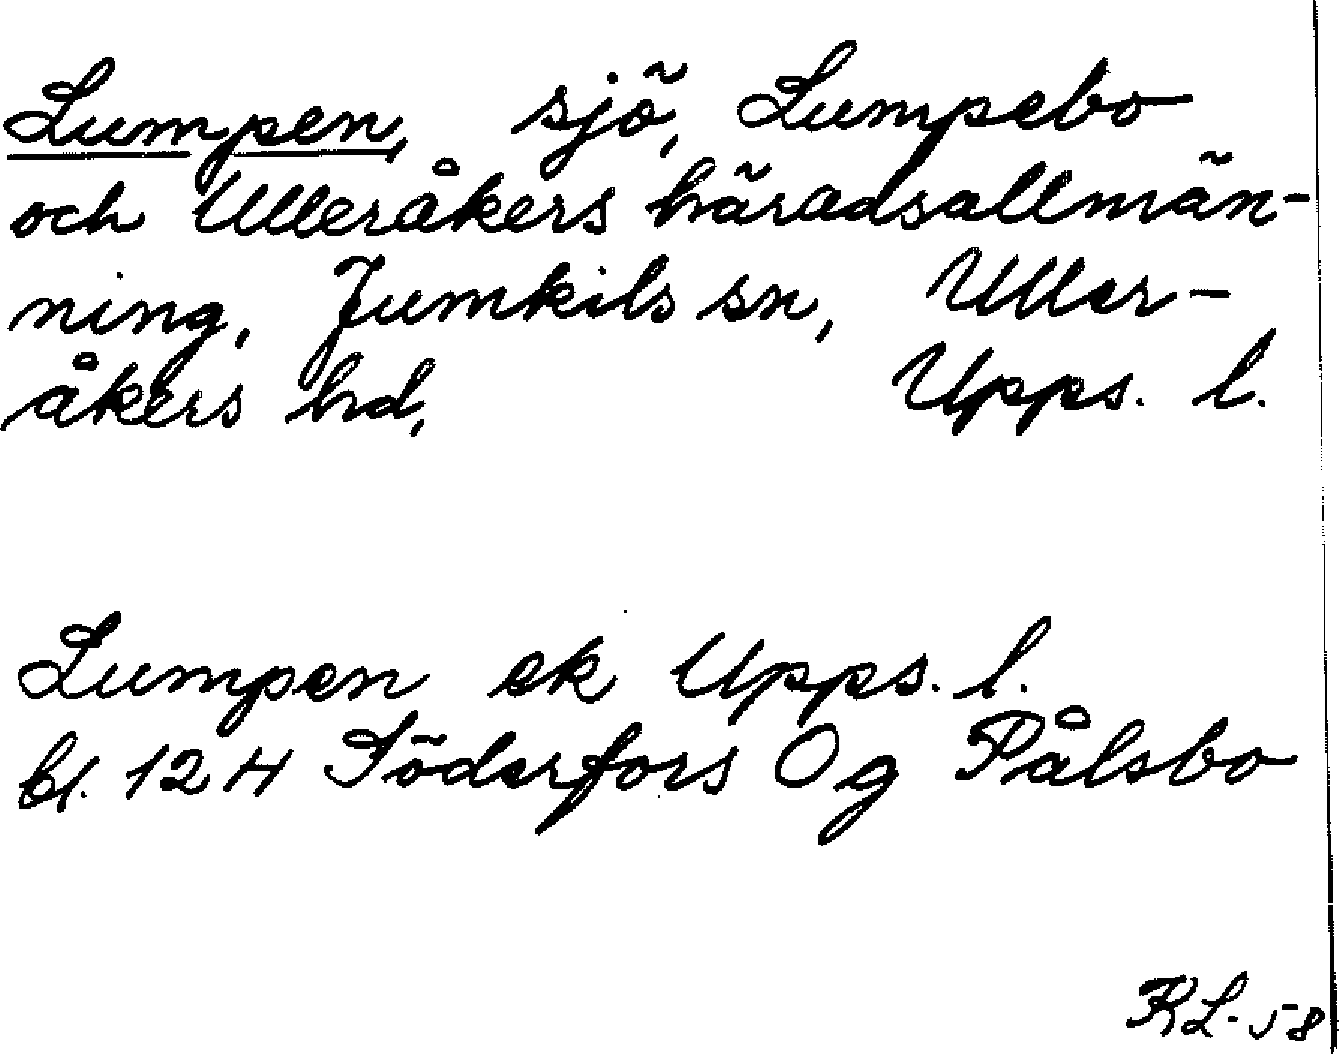 Lumpen, sjö, Lumpebo
och Ulleråkers häradsallmän-
ning, Jumkils sn, Uller-
åkers hd, Upps. l.
Lumpen ek Upps. l.
bl. 12 H Söderfors Og Pålsbo
KL-58